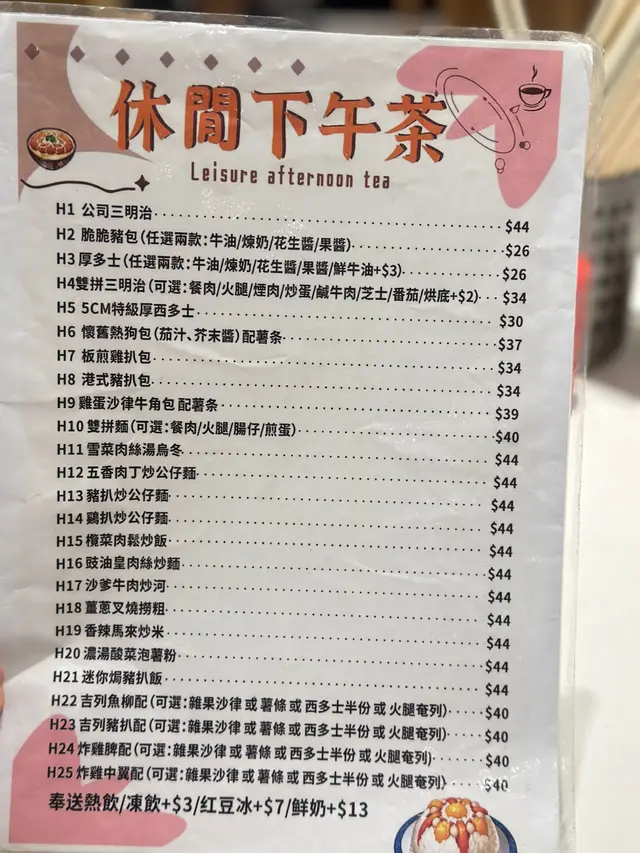 休閒下午茶
Leisure afternoon tea
H1 公司三明治 $44
H2 脆脆豬包(任選兩款:牛油/煉奶/花生醬/果醬) $26
H3 厚多士(任選兩款:牛油/煉奶/花生醬/果醬/鮮牛油+$3) $26
H4 雙拼三明治(可選:餐肉/火腿/煙肉/炒蛋/鹹牛肉/芝士/番茄/烘底+$2) $34
H5 5CM特級厚西多士 $30
H6 懷舊熱狗包(茄汁、芥末醬)配薯条 $37
H7 板煎雞扒包 $34
H8 港式豬扒包 $34
H9 雞蛋沙律牛角包 配薯条 $39
H10 雙拼麵(可選:餐肉/火腿/腸仔/煎蛋) $40
H11 雪菜肉絲湯烏冬 $44
H12 五香肉丁炒公仔麵 $44
H13 豬扒炒公仔麵 $44
H14 鷄扒炒公仔麵 $44
H15 欖菜肉鬆炒飯 $44
H16 豉油皇肉絲炒麵 $44
H17 沙爹牛肉炒河 $44
H18 薑蔥叉燒撈粗 $44
H19 香辣馬來炒米 $44
H20 濃湯酸菜泡薯粉 $44
H21 迷你焗豬扒飯 $44
H22 吉列魚柳配(可選:雜果沙律 或 薯條 或 西多士半份 或 火腿奄列) $40
H23 吉列豬扒配(可選:雜果沙律 或 薯條 或 西多士半份 或 火腿奄列) $40
H24 炸雞脾配(可選:雜果沙律 或 薯條 或 西多士半份 或 火腿奄列) $40
H25 炸雞中翼配(可選:雜果沙律 或 薯條 或 西多士半份 或 火腿奄列) $40
奉送熱飲/凍飲+$3/红豆冰+$7/鮮奶+$13